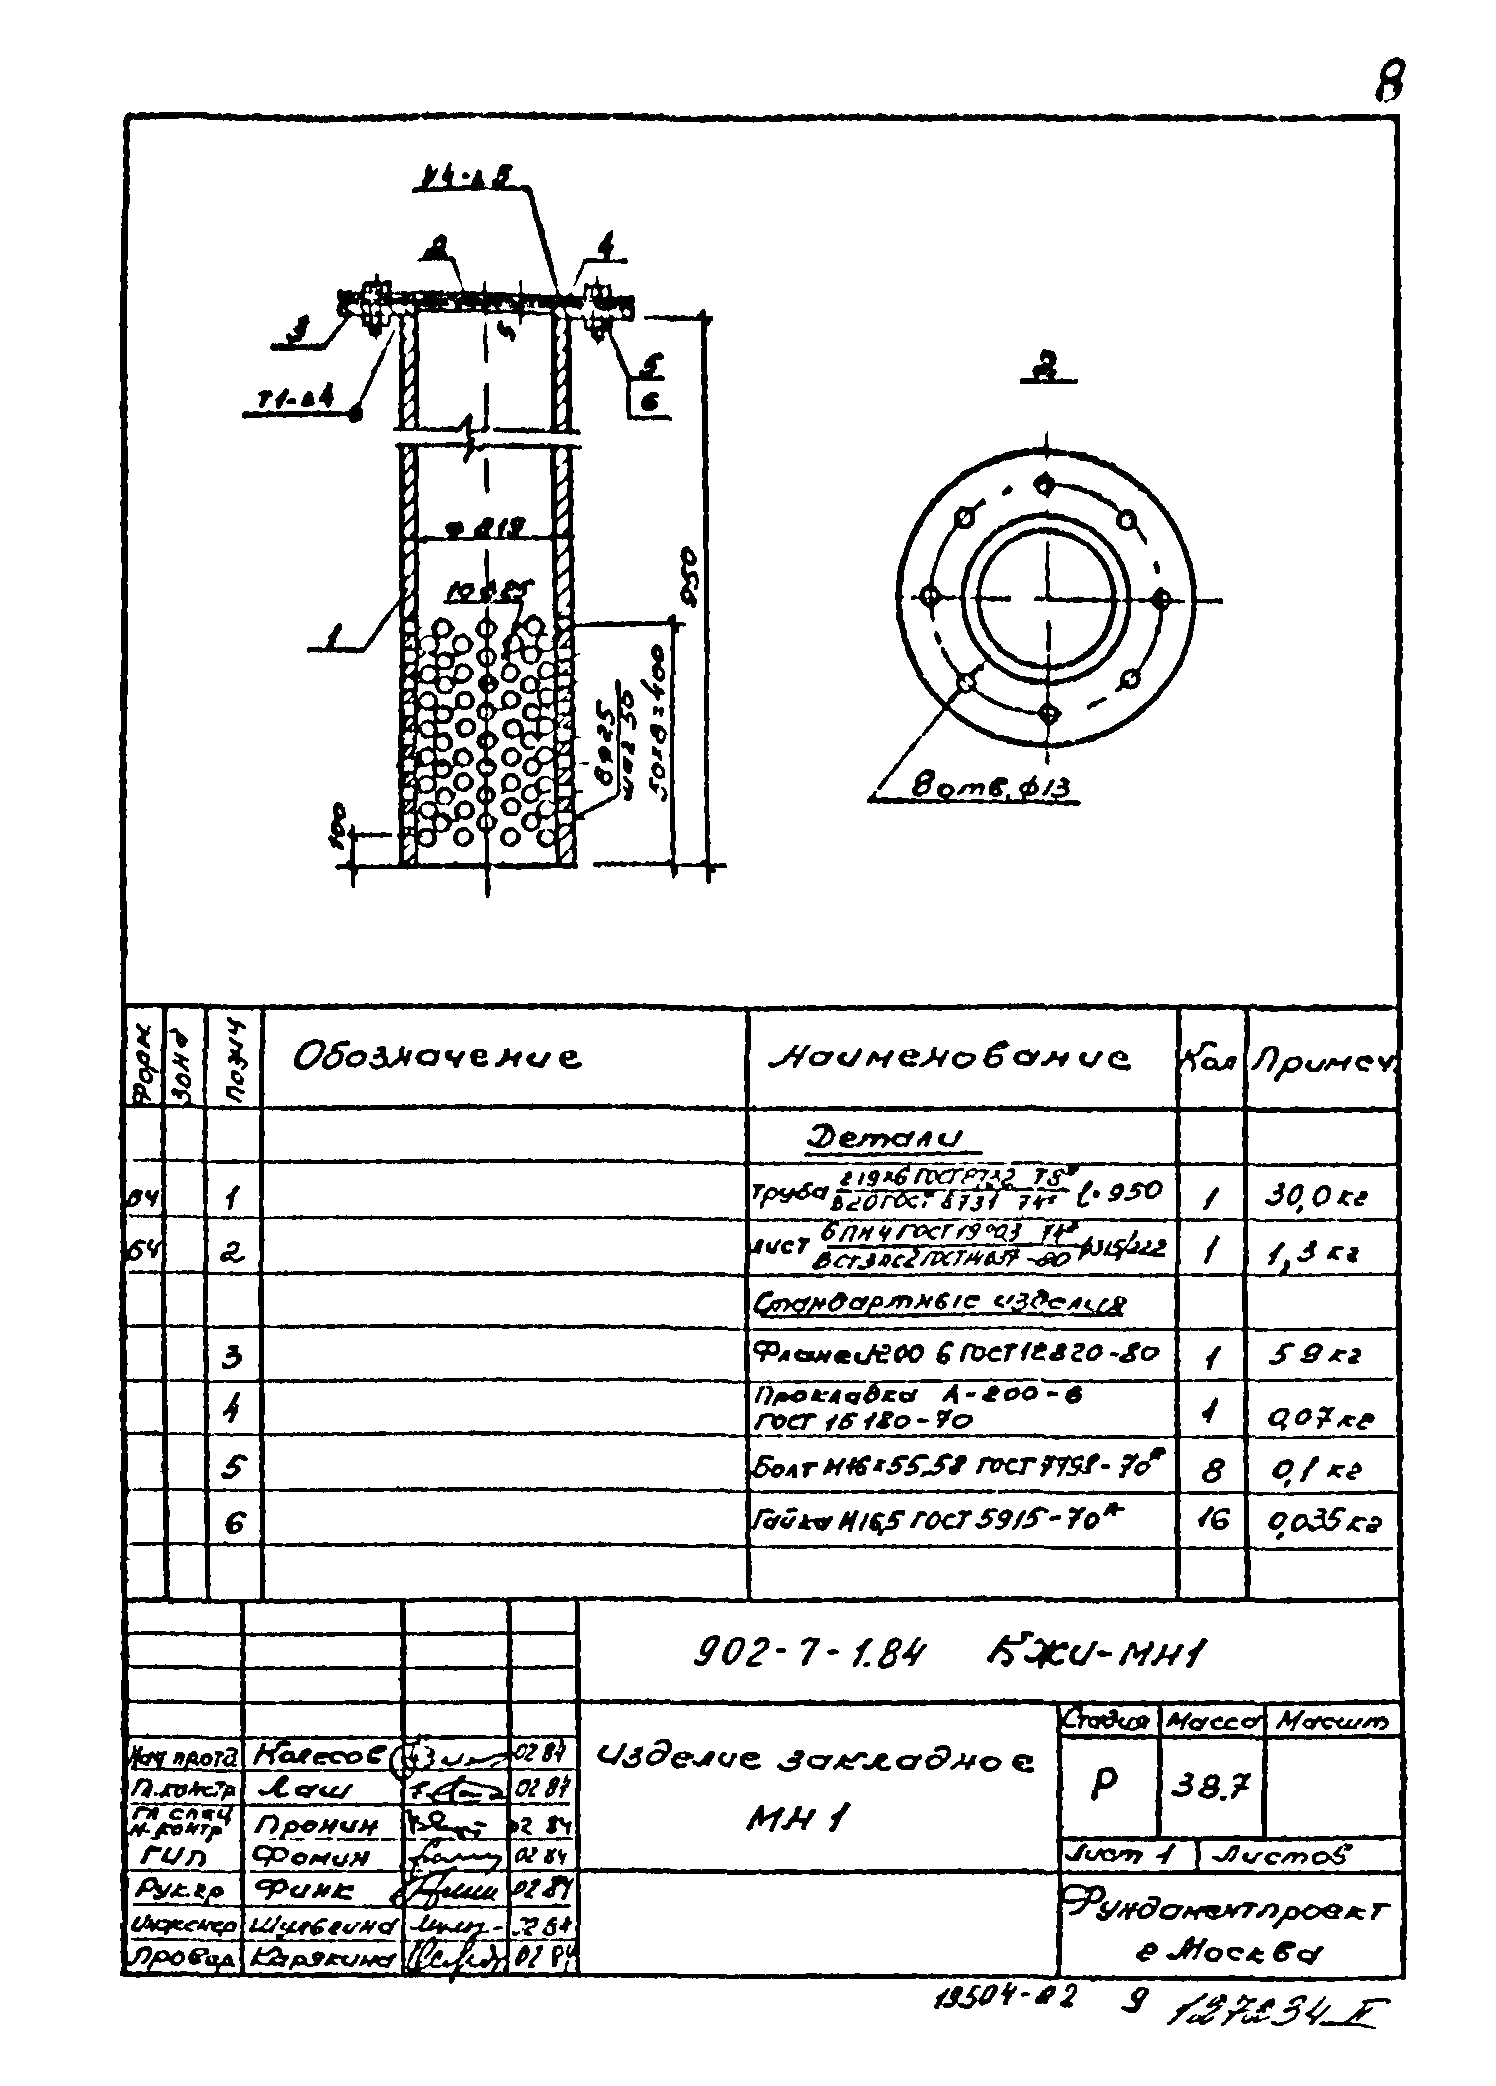 8
У4-Δ5
2
4
3
5
5
6
Т1-Δ4
2
ф 219
10 ф 25
1
950
8 ф 25
шаг 50
50х8=400
100
8 отв. ф13
Форм
Зона
Позич
Обозначение
Наименование
Кол
Примеч.
Детали
БЧ 1 Труба 219х6 ГОСТ 8732 78* l=950 1 30,0 кг
В20 ГОСТ 8731 74*
БЧ 2 Лист БПН 4 ГОСТ 19903 74* ф315/222 1 1,3 кг
ВСт3пс2 ГОСТ 14637-80
Стандартные изделия
3 Фланец 200 6 ГОСТ 12820-80 1 5 9 кг
4 Прокладка А-200-6
ГОСТ 15180-70 1 0,07 кг
5 Болт М16х55.58 ГОСТ 7798-70* 8 0,1 кг
6 Гайка М16,5 ГОСТ 5915-70* 16 0,035 кг
902-7-1.84 КЖИ-МН1
Стадия Масса Масшт
Нач прота Колесов 02 84
Изделие закладное
МН 1
Р 38.7
Гл.констр Лаш 02 84
Гл спец
Н-контр Пронин 02 84
ГИП Фомин 02 84
Лист 1 Листов
Рук.гр Финк 02 84
Фундаментпроект
г Москва
Инженер 02 84
Провер Карякина 02 84
19504-02 9 127234 II